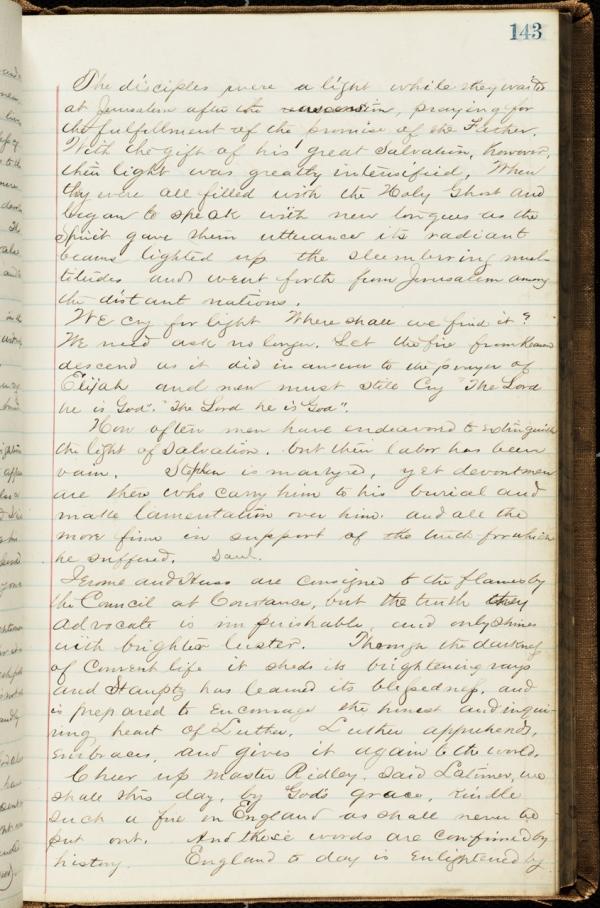 143
The disciples were a light while they waited
at Jerusalem after the ascension, praying for
the fulfillment of the promise of the Father.
With the gift of his great Salvation, however,
their light was greatly intensified, When
they were all filled with the Holy Ghost and
began to speak with new tongues as the
Spirit gave them utterance its radiant
beams lighted up the slumbering mul-
titudes and went forth from Jerusalem among
the distant nations.
We cry for light Where shall we find it?
We need ask no longer. Let the fire from Heaven
descend as it did in answer to the prayer of
Elijah and men must still Cry "The Lord
he is God". "The Lord he is God".
How often men have endeavored to extinguish
the light of Salvation. but their labor has been
vain. Stephen is martyred, yet devout men
are there who carry him to his burial and
make lamentation over him. and all the
more firm in support of the truth for which
he suffered. Saul.
Jerome and Huss are consigned to the flames by
the Council at Constance, but the truth they
advocate is imperishable and only shines
with brighter luster. Through the darkness
of Convent life it sheds its brightening rays
and Stauptz has learned its blessedness. and
is prepared to encourage the honest and inqui-
ring heart of Luther. Luther apprehends,
embraces, and gives it again to the world.
Cheer up Master Ridley. said Latimer, we
shall this day, by God's grace, kindle
such a fire in England as shall never be
put out. And these words are confirmed by
history. England to day is enlightened by